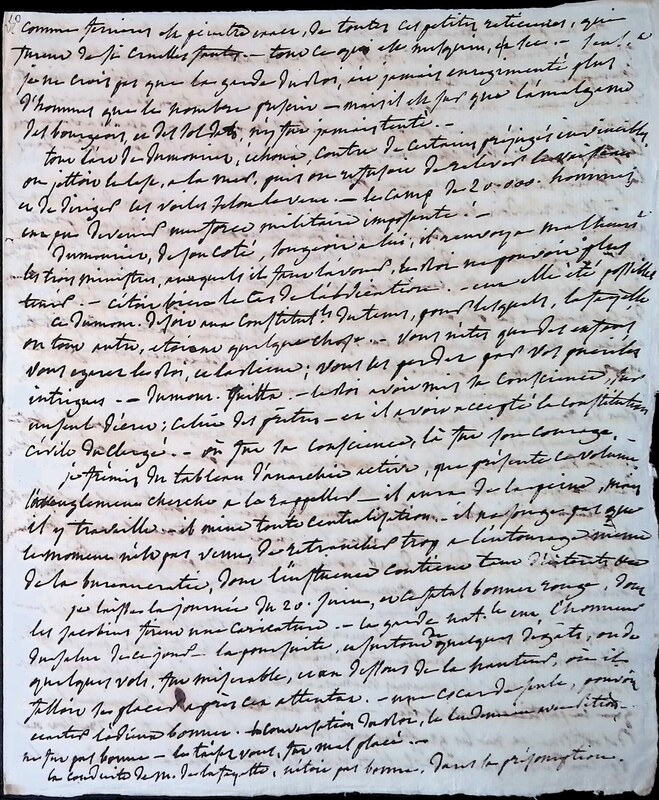 comme ferrieres est peintre exact, de toutes ces petites reticences, qui
furent de si cruelles fautes. — tout ce que est mesquin, &
je ne crois pas que la garde du roi, ait jamais enregimenté plus
d'hommes que le nombre — mais il est sur que l'amalgame
des bourgeois, et des soldats, n'y fut jamais tenté. —
tout l'art de dumourier, echoua, contre de certains préjugés invincibles,
on jettoit le lest, a la mer, puis on refusoit de relever le vaisseau
et de diriger les voiles selon le vent. — le camp de 20.000. hommes,
eut pu devenir une force militaire imposante. —
Dumourier, de son coté, songeoit a lui; il renvoya
les trois ministres, auxquels il fut le roi ne pouvoit plus
tenir. — c'étoit le cas de l'abdication. — eut elle été possible
ce dumour. disoit aux constitut.ls du tems, pour lesquels, lafayette
ou tout autre, etoient quelque chose — vous n'etes que des enfans
vous egarez le roi, et la reine; vous les perdez par vos pueriles
intrigues — dumour. quitta. — le roi avoit mis sa conscience, sur
un seul décret; celui des prêtres — et il avoit accepté la constitution
civile du clergé. — où fut sa conscience, là fut son courage. —
je frémis du tableau d'anarchie active, que présente ce volume
l'aveuglement cherche a la rappeller — il aura de la peine, mais
il y travaille — il mine toute centralisation. — il ne songe pas que
le moment n'est pas venu, de retrancher trop a l'entourage même
de la bureaucratie, dont l'influence contient tant d'interets
je laisse la journée du 20. juin, et ce fatal bonnet rouge, dont
les jacobins firent une caricature — la garde nat.le eut l'honneur
du salut de ce jour — la poursuite, et surtout de quelques dégats, ou de
quelques vols, fut misérable, et au dessous de la hauteur, où il
falloit se placer après cet attentat. — une cocarde seule, pouvoit
ecarter le bonnet. — la conversation du roi, le lendemain avec Petion
ne fut pas bonne — le taisez vous, fut mal placé. —
la conduite de m. de lafayette, n'etoit pas bonne, dans la présomption.